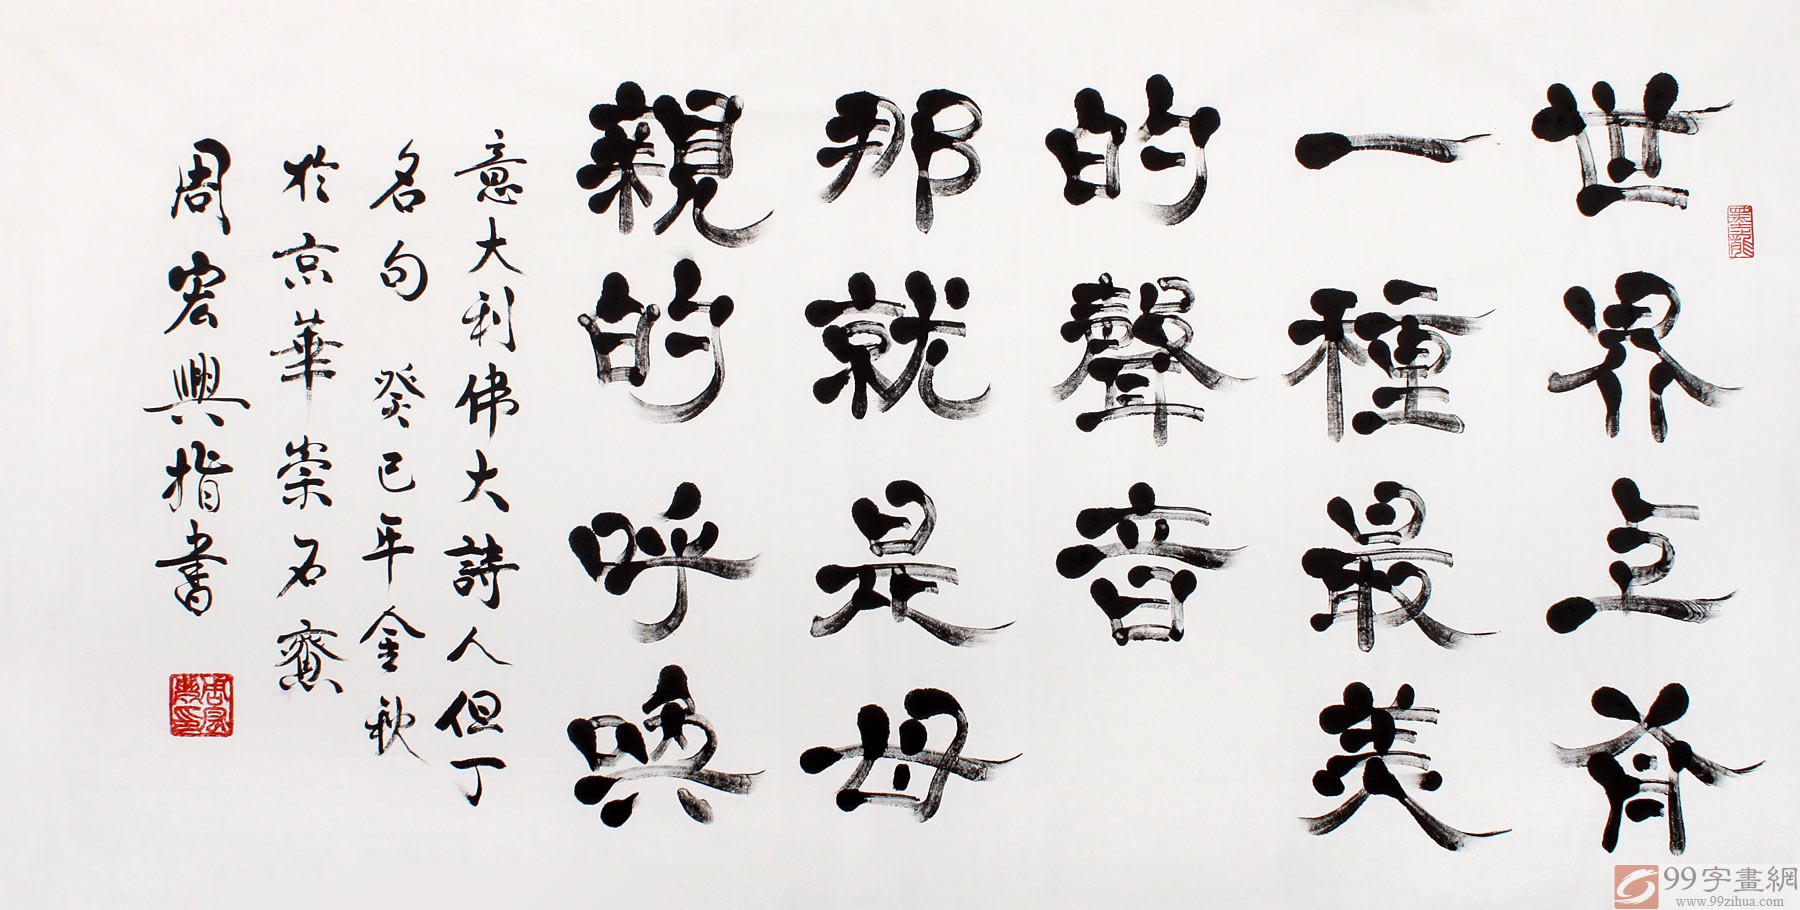 世界上有
一種最美
的聲音
那就是母
親的呼喚
意大利伟大詩人但丁
名句 癸巳年金秋
於京華崇石齋
周宏興指書
周宏興印
99字畫網
www.99zihua.com